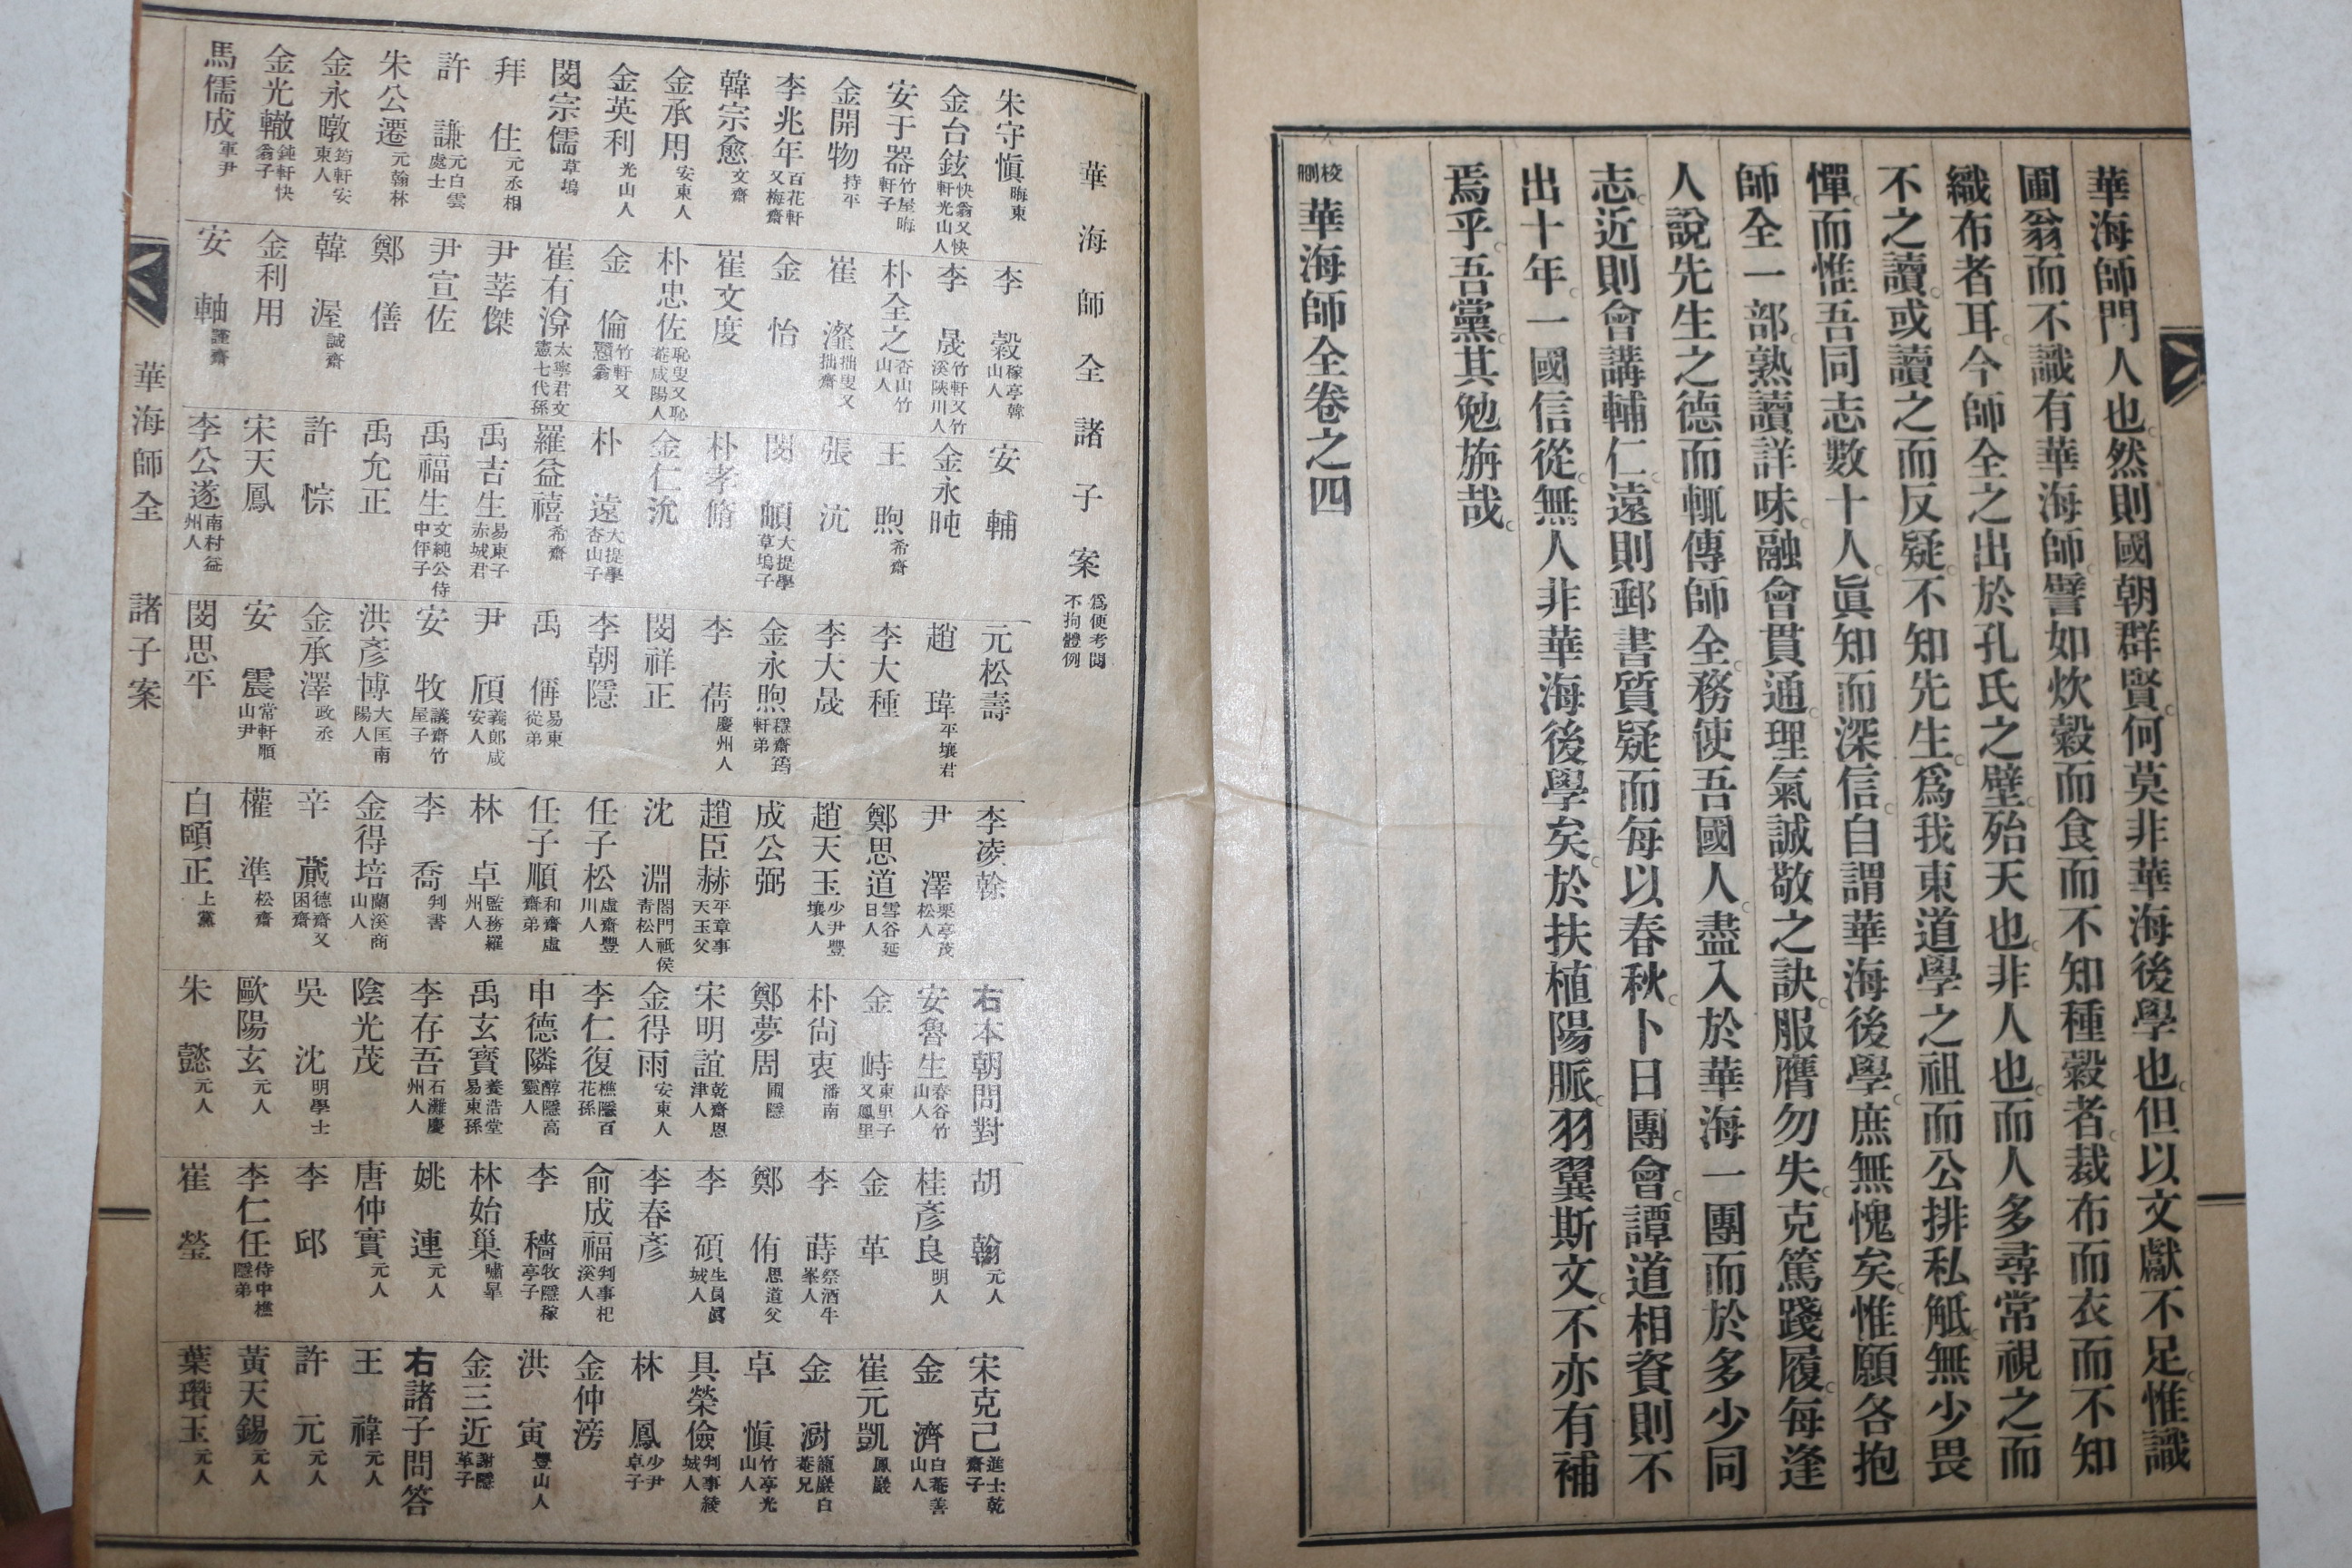 華海師門人也然則國朝群賢何莫非華海後學也但以文獻不足惟識
圃翁而不識有華海師譬如炊穀而食而不知種穀者裁布而衣而不知
織布者耳今師全之出於孔氏之壁殆天也非人也而人多尋常視之而
不之讀或讀之而反疑不知先生爲我東道學之祖而公排私觝無少畏
憚而惟吾同志數十人眞知而深信自謂華海後學庶無愧矣惟願各抱
師全一部熟讀詳味融會貫通理氣誠敬之訣服膺勿失克篤踐履每逢
人說先生之德而輒傳師全務使吾國人盡入於華海一團而於多少同
志近則會講輔仁遠則郵書質疑而每以春秋卜日團會譚道相資則不
出十年一國信從無人非華海後學矣於扶植陽脈羽翼斯文不亦有補
焉乎吾黨其勉旃哉
校刪 華海師全卷之四
華海師全諸子案 爲便考閱不拘體例
朱守愼 晦東 李穀 稼亭韓山人 安輔 元松壽 李凌幹 右本朝問對 胡翰 元人 宋克己 進士乾齋子
金台鉉 快翁又快軒光山人 李晟 竹軒又竹溪陜川人 金永旽 趙瑋 平壤君 尹澤 栗亭茂松人 安魯生 春谷竹山人 桂彥良 明人 金濟 白菴善山人
安于器 竹屋晦軒子 朴全之 杏山竹山人 王煦 希齋 李大種 鄭思道 雪谷延日人 金峙 東里子又鳳里 金革 崔元凱 鳳巖
金開物 持平 崔瀣 拙叟又拙齋 張沆 李大晟 趙天玉 少尹豐壤人 朴尙衷 潘南 李蒔 祭酒牛峯人 金澍 籠巖白菴兄
李兆年 百花軒又梅齋 金怡 閔頔 大提學草塢子 金永煦 穩齋筠軒弟 成公弼 鄭夢周 圃隱 鄭侑 思道父 卓愼 竹亭光山人
韓宗愈 文齋 崔文度 朴孝脩 李蒨 慶州人 趙臣赫 平章事天玉父 宋明誼 乾齋恩津人 李碩 生員眞城人 具榮儉 判事綾城人
金承用 安東人 朴忠佐 恥叟又恥菴咸陽人 金仁沇 閔祥正 沈淵 閤門祗侯靑松人 金得雨 安東人 李春彥 林鳳 少尹卓子
金英利 光山人 金倫 竹軒又戇翁 朴遠 大提學杏山子 李朝隱 任子松 虛齋豐川人 李仁復 樵隱百花孫 俞成福 判事杞溪人 金仲滂
閔宗儒 草塢 崔有渰 太寧君文憲七代孫 羅益禧 希齋 禹偁 易東從弟 任子順 和齋虛齋弟 申德隣 醇隱高靈人 李穡 牧隱稼亭子 洪寅 豐山人
拜住 元丞相 尹莘傑 禹吉生 易東子赤城君 尹頎 義郎咸安人 林卓 監務羅州人 禹玄寶 養浩堂易東孫 林始巢 嘯皐 金三近 謝隱革子
許謙 元白雲處士 尹宣佐 禹福生 文純公侍中伻子 安牧 議齋竹屋子 李喬 判書 李存吾 石灘慶州人 姚連 元人 右諸子問答
朱公遷 元翰林 鄭僐 禹允正 洪彥博 大匡南陽人 金得培 蘭溪商山人 陰光茂 唐仲實 元人 王禕 元人
金永暾 筠軒安東人 韓渥 誠齋 許悰 金承澤 政丞 辛蕆 德齋又困齋 吳沈 明學士 李邱 許元 元人
金光轍 鈍軒快翁子 金利用 宋天鳳 安震 常軒順山尹 權準 松齋 歐陽玄 元人 李仁任 侍中樵隱弟 黃天錫 元人
馬儒成 軍尹 安軸 謹齋 李公遂 南村益州人 閔思平 白頤正 上黨 朱懿 元人 崔瑩 葉瓚玉 元人
華海師全 諸子案